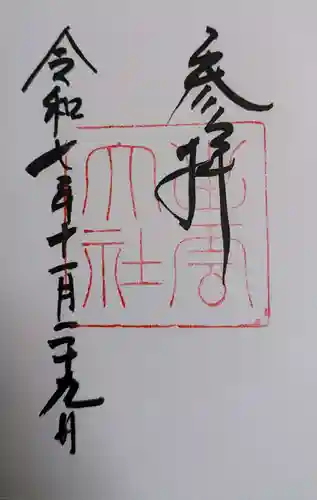 参拝
出雲大社
令和七年十一月二十九日